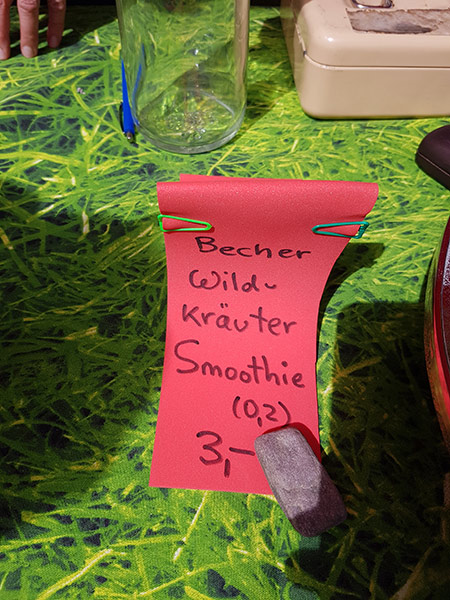 Becher
Wild-
Kräuter
Smoothie
(0,2)
3,-